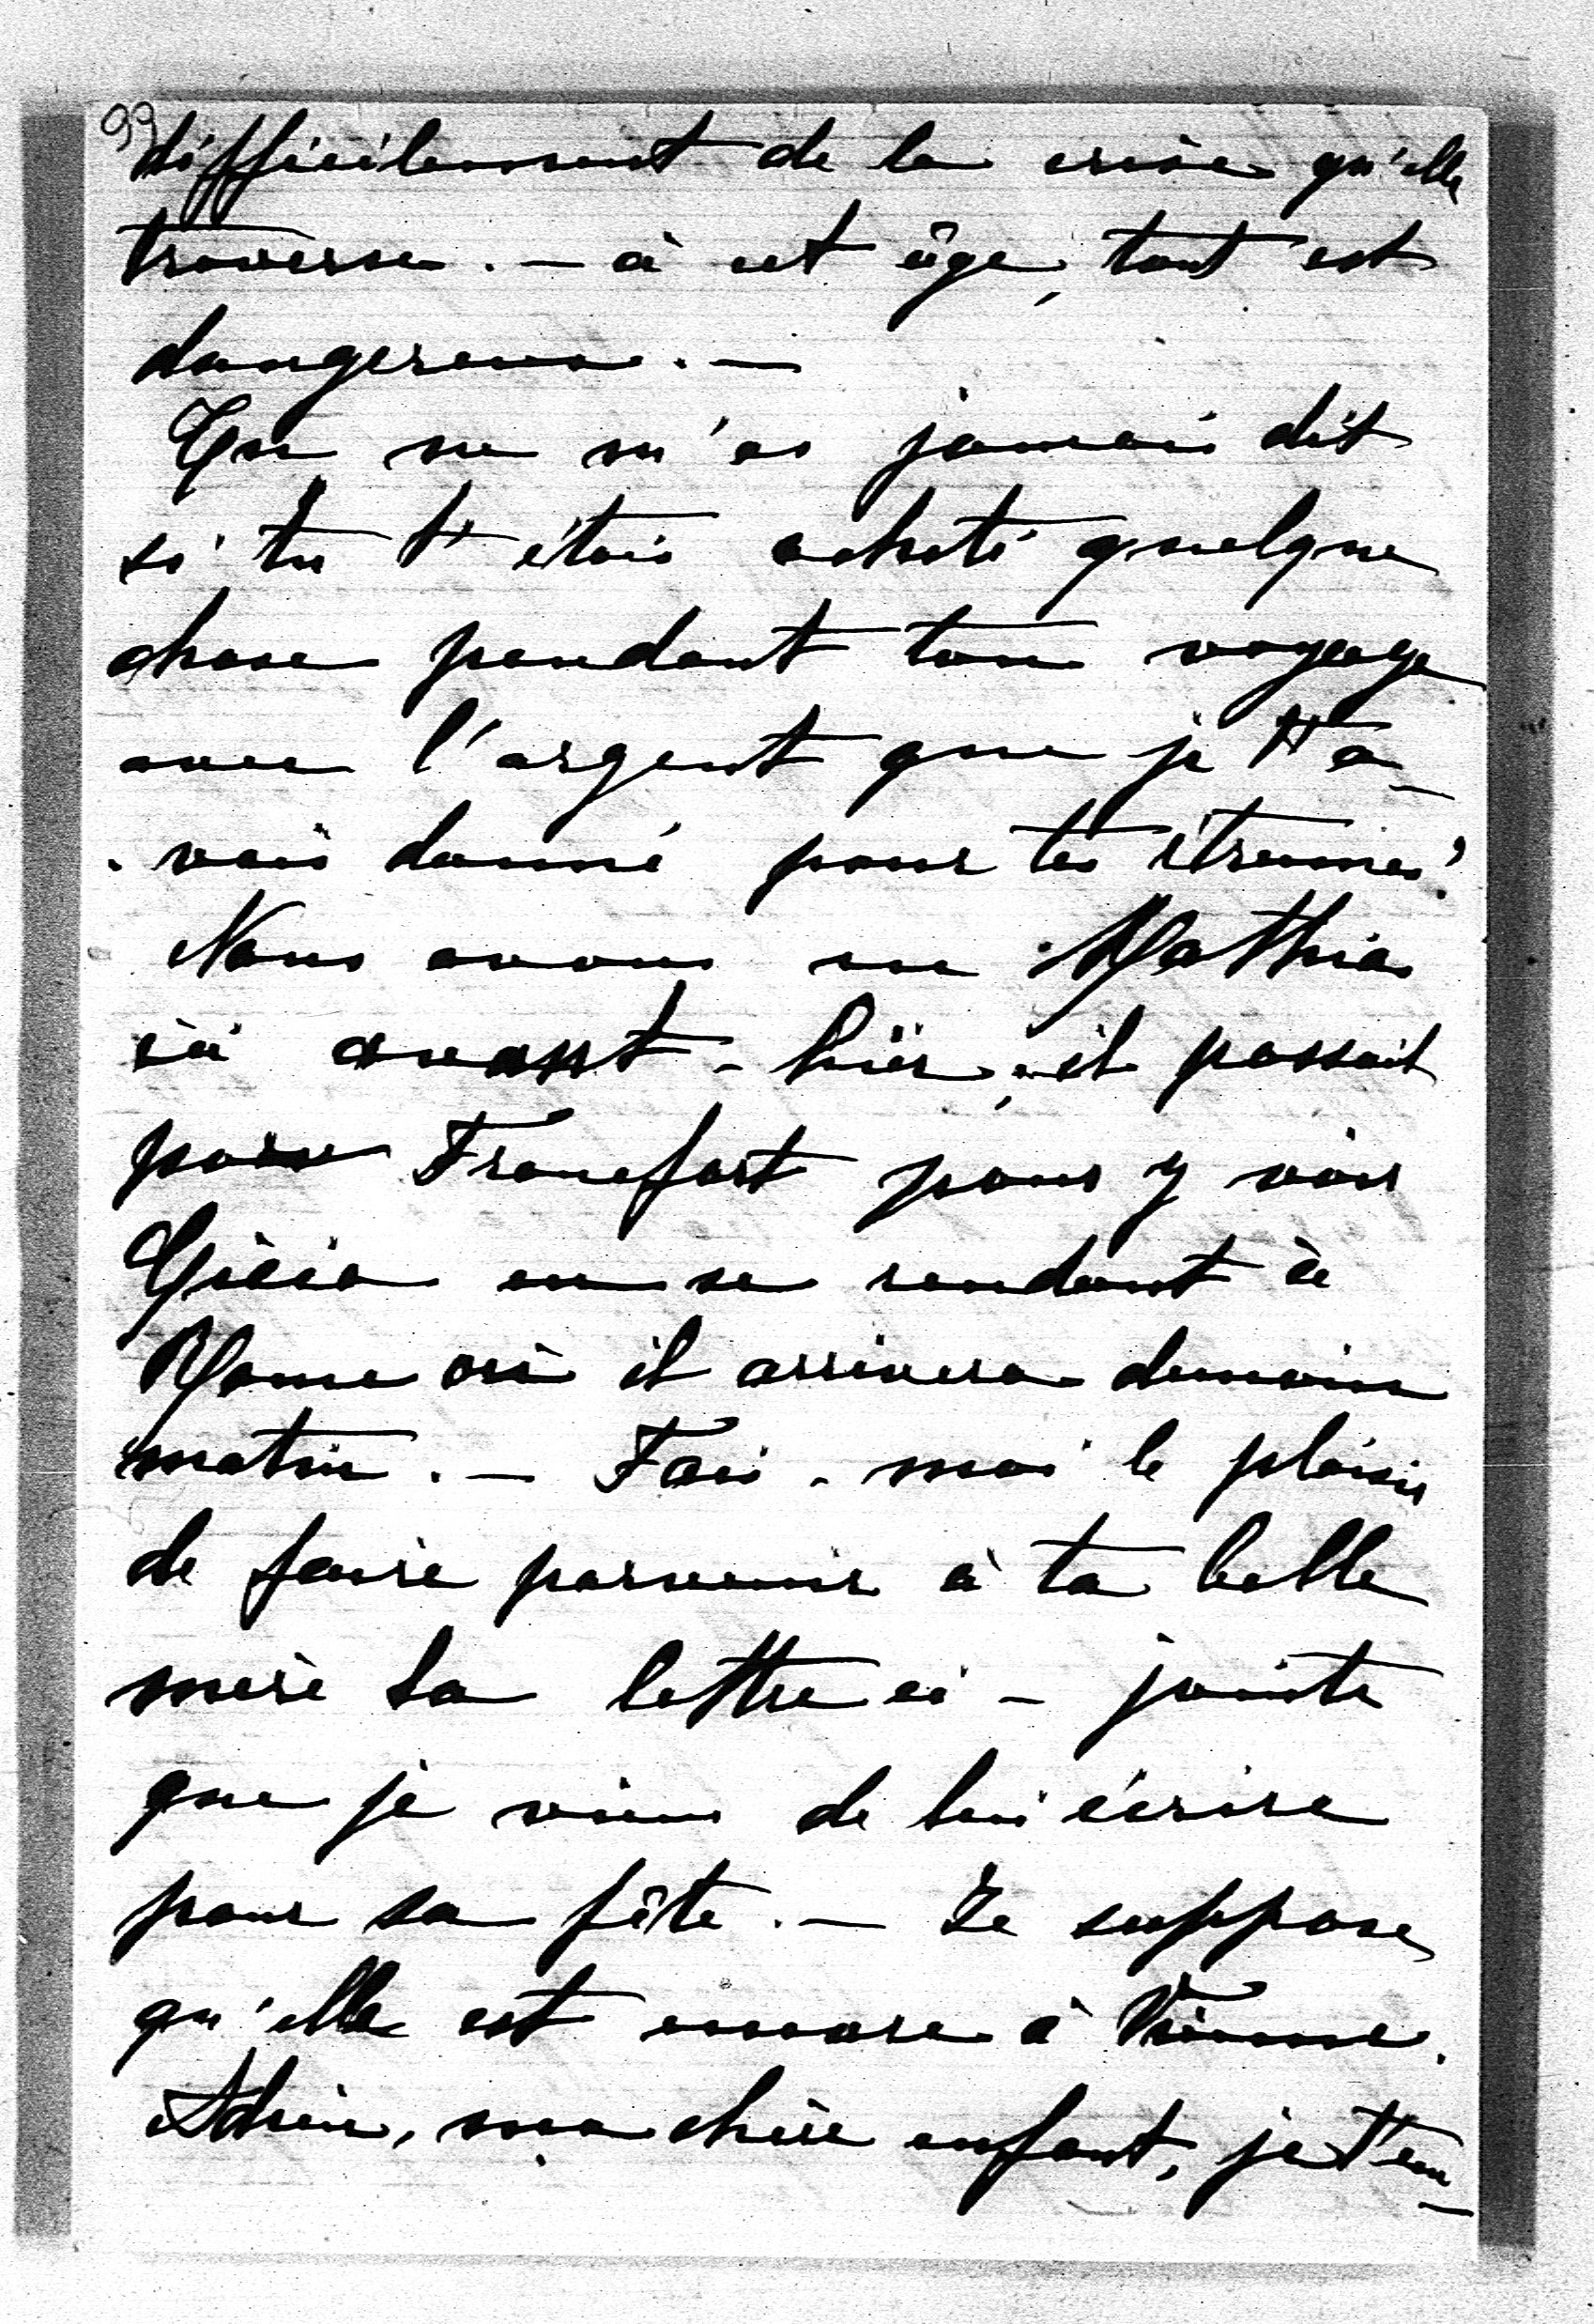 99
difficilement de la crise qu'elle
traverse. — à cet âge, tout est
dangereux. —
Tu ne m'as jamais dit
si tu t'étais acheté quelque
chose pendant ton voyage
avec l'argent que je t'a-
-vais donné pour tes étrennes?
Nous avons vu Mathias
ici avant-hier, il passait
pour Francfort pour y voir
en se rendant à
Rome où il arrivera demain
matin. — Fais-moi le plaisir
de faire parvenir à ta belle
mère la lettre ci-jointe
que je viens de lui écrire
pour sa fête. — Je suppose
qu'elle est encore à Vienne.
Adieu, ma chère enfant, je t'em-